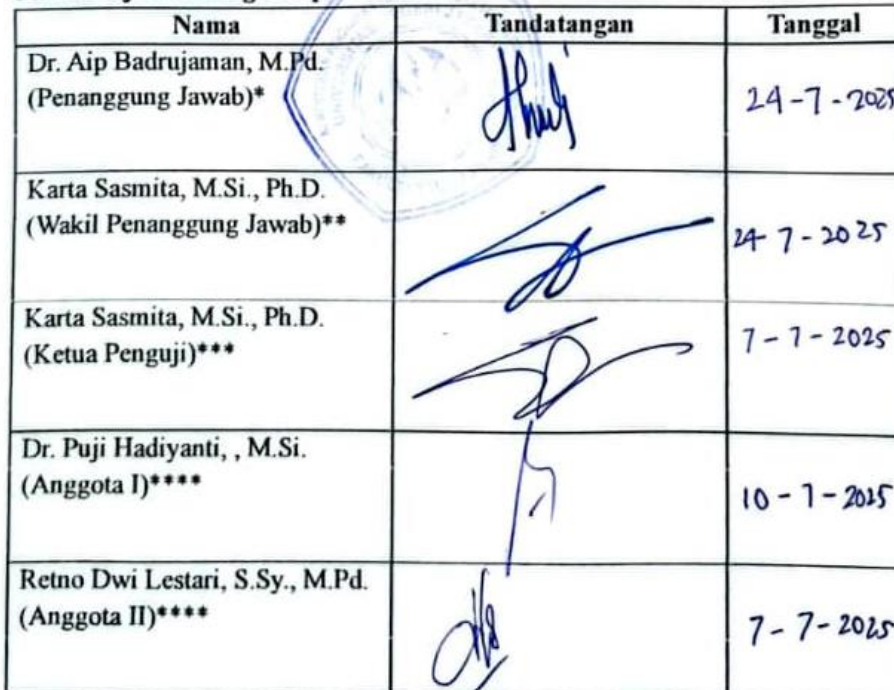 Nama Tandatangan Tanggal
Dr. Aip Badrujaman, M.Pd.
(Penanggung Jawab)*
24-7-2025
Karta Sasmita, M.Si., Ph.D.
(Wakil Penanggung Jawab)**
24-7-2025
Karta Sasmita, M.Si., Ph.D.
(Ketua Penguji)***
7-7-2025
Dr. Puji Hadiyanti, , M.Si.
(Anggota I)****
10-7-2025
Retno Dwi Lestari, S.Sy., M.Pd.
(Anggota II)****
7-7-2025